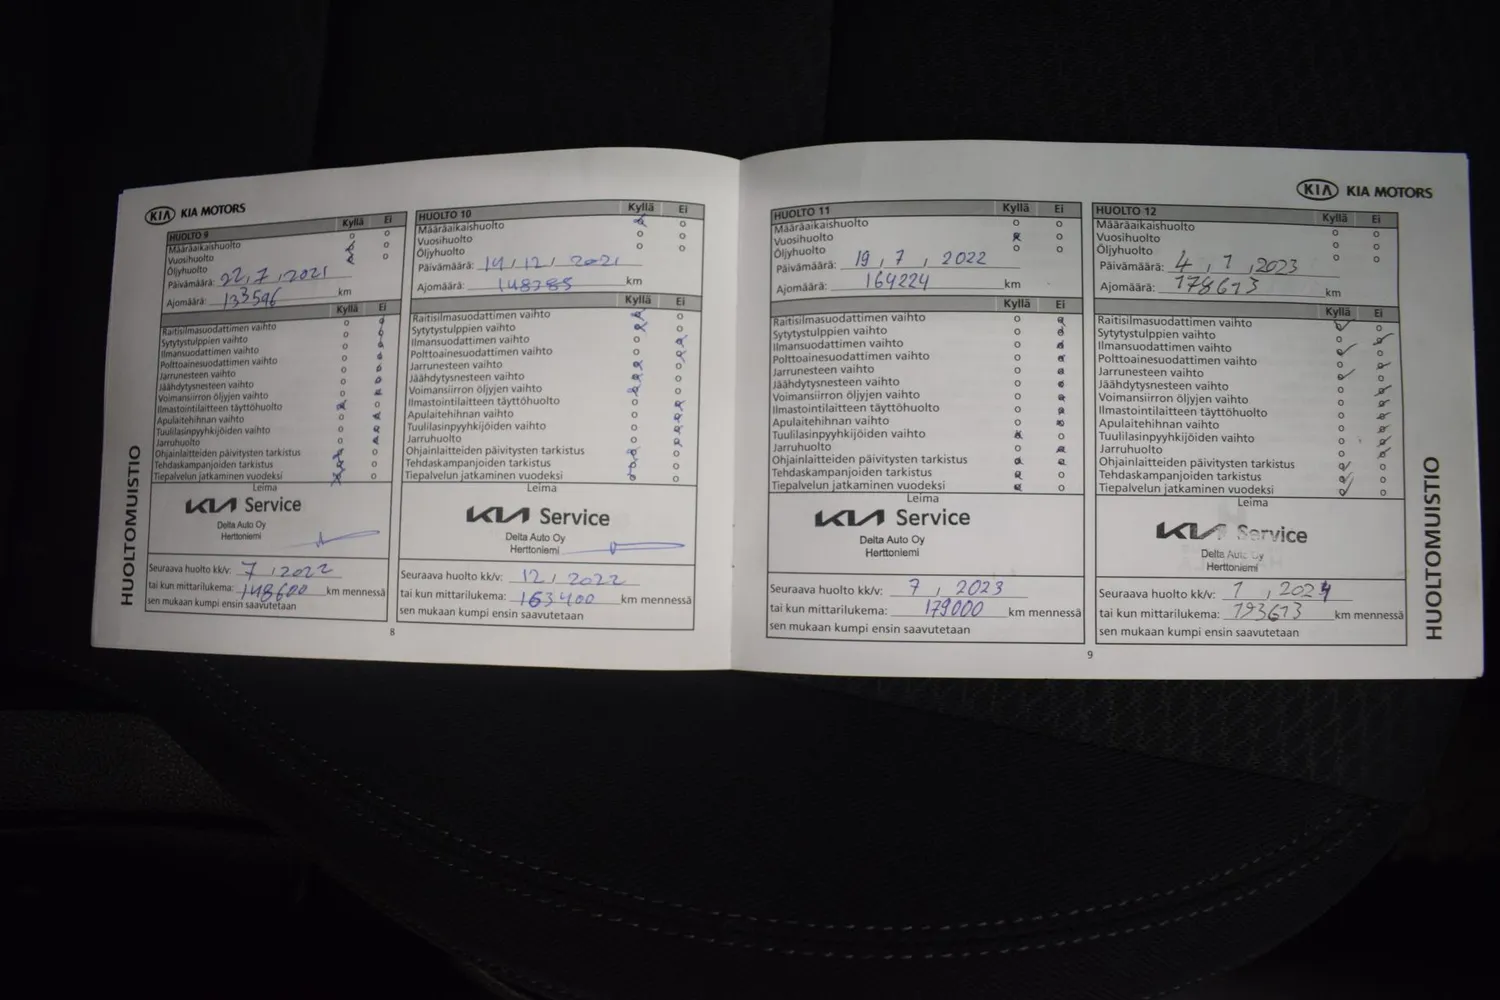 KIA KIA MOTORS
HUOLTO 9 Kyllä Ei
Määräaikaishuolto
Vuosihuolto
Öljyhuolto
Päivämäärä: 22,7,2021
Ajomäärä: 133596 km
Kyllä Ei
Raitisilmasuodattimen vaihto
Sytytystulppien vaihto
Ilmansuodattimen vaihto
Polttoainesuodattimen vaihto
Jarrunesteen vaihto
Jäähdytysnesteen vaihto
Voimansiirron öljyjen vaihto
Ilmastointilaitteen täyttöhuolto
Apulaitehihnan vaihto
Tuulilasinpyyhkijöiden vaihto
Jarruhuolto
Ohjainlaitteiden päivitysten tarkistus
Tehdaskampanjoiden tarkistus
Tiepalvelun jatkaminen vuodeksi
Leima
KIA Service
Delta Auto Oy
Herttoniemi
Seuraava huolto kk/v: 7,2022
tai kun mittarilukema: 148600 km mennessä
sen mukaan kumpi ensin saavutetaan
HUOLTOMUISTIO
HUOLTO 10 Kyllä Ei
Määräaikaishuolto
Vuosihuolto
Öljyhuolto
Päivämäärä: 14,12,2021
Ajomäärä: 148785 km
Kyllä Ei
Raitisilmasuodattimen vaihto
Sytytystulppien vaihto
Ilmansuodattimen vaihto
Polttoainesuodattimen vaihto
Jarrunesteen vaihto
Jäähdytysnesteen vaihto
Voimansiirron öljyjen vaihto
Ilmastointilaitteen täyttöhuolto
Apulaitehihnan vaihto
Tuulilasinpyyhkijöiden vaihto
Jarruhuolto
Ohjainlaitteiden päivitysten tarkistus
Tehdaskampanjoiden tarkistus
Tiepalvelun jatkaminen vuodeksi
Leima
KIA Service
Delta Auto Oy
Herttoniemi
Seuraava huolto kk/v: 12,2022
tai kun mittarilukema: 163400 km mennessä
sen mukaan kumpi ensin saavutetaan
8
HUOLTO 11 Kyllä Ei
Määräaikaishuolto
Vuosihuolto
Öljyhuolto
Päivämäärä: 19,7,2022
Ajomäärä: 164224 km
Kyllä Ei
Raitisilmasuodattimen vaihto
Sytytystulppien vaihto
Ilmansuodattimen vaihto
Polttoainesuodattimen vaihto
Jarrunesteen vaihto
Jäähdytysnesteen vaihto
Voimansiirron öljyjen vaihto
Ilmastointilaitteen täyttöhuolto
Apulaitehihnan vaihto
Tuulilasinpyyhkijöiden vaihto
Jarruhuolto
Ohjainlaitteiden päivitysten tarkistus
Tehdaskampanjoiden tarkistus
Tiepalvelun jatkaminen vuodeksi
Leima
KIA Service
Delta Auto Oy
Herttoniemi
Seuraava huolto kk/v: 7,2023
tai kun mittarilukema: 179000 km mennessä
sen mukaan kumpi ensin saavutetaan
KIA KIA MOTORS
HUOLTO 12 Kyllä Ei
Määräaikaishuolto
Vuosihuolto
Öljyhuolto
Päivämäärä: 4,1,2023
Ajomäärä: 178613 km
Kyllä Ei
Raitisilmasuodattimen vaihto
Sytytystulppien vaihto
Ilmansuodattimen vaihto
Polttoainesuodattimen vaihto
Jarrunesteen vaihto
Jäähdytysnesteen vaihto
Voimansiirron öljyjen vaihto
Ilmastointilaitteen täyttöhuolto
Apulaitehihnan vaihto
Tuulilasinpyyhkijöiden vaihto
Jarruhuolto
Ohjainlaitteiden päivitysten tarkistus
Tehdaskampanjoiden tarkistus
Tiepalvelun jatkaminen vuodeksi
Leima
KIA Service
Delta Auto Oy
Herttoniemi
Seuraava huolto kk/v: 1,2024
tai kun mittarilukema: 193613 km mennessä
sen mukaan kumpi ensin saavutetaan
9
HUOLTOMUISTIO